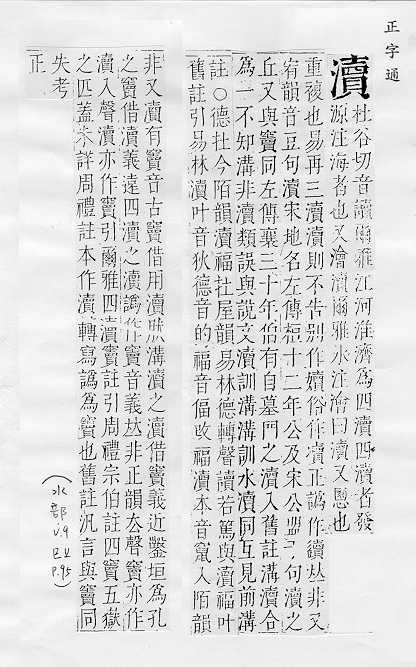 正字通
瀆
杜谷切音讀爾雅江河淮濟為四瀆四瀆者發
源注海者也又澮瀆爾雅水注澮曰瀆又慁也
重複也易再三瀆瀆則不告別作嬻俗作凟正譌作續𠀤非又
宥韻音豆句瀆宋地名左傳桓十二年公及宋公盟于句瀆之
丘又與竇同左傳襄三十年伯有自墓門之瀆入舊註溝瀆合
為一不知溝非瀆類誤與說文瀆訓溝溝訓水瀆同互見前溝
註○德杜今陌韻瀆福杜屋韻易林德轉聲讀若篤與瀆福叶
舊註引易林瀆叶音狄德音的福音偪改福瀆本音竄入陌韻
非又瀆有竇音古竇借用瀆然溝瀆之瀆借竇義近鑿垣為孔
之竇借瀆義遠四瀆之瀆譌作竇音義𠀤非正韻去聲竇亦作
瀆入聲瀆亦作竇引爾雅四瀆竇註引周禮宗伯註四竇五嶽
之匹蓋未詳周禮註本作瀆轉寫譌為竇也舊註汎言與竇同
失考
正
(水部
v.9
P.95)